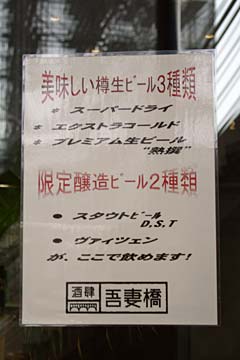 美味しい樽生ビール3種類
* スーパードライ
* エクストラコールド
* プレミアム生ビール
"熟撰"
限定醸造ビール2種類
• スタウトビール
D.S.T
• ヴァイツェン
が、ここで飲めます!
酒肆 吾妻橋